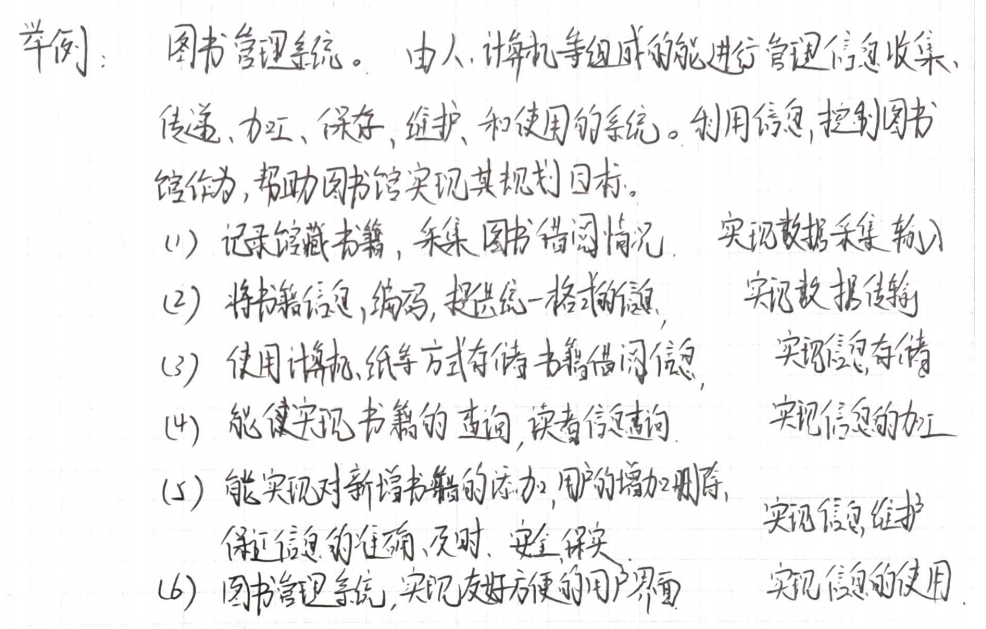 举例： 图书管理系统。 由人、计算机等组成的能进行管理信息收集、
传递、加工、保存、维护、和使用的系统。利用信息,控制图书
馆作为,帮助图书馆实现其规划目标。
(1) 记录馆藏书籍, 采集图书借阅情况. 实现数据采集输入
(2) 将书籍信息,编码,提供统一格式的信息, 实现数据传输
(3) 使用计算机、纸等方式存储书籍借阅信息, 实现信息存储
(4) 能够实现书籍的查询,读者信息查询. 实现信息的加工
(5) 能实现对新增书籍的添加,用户的增加删除,
保证信息的准确、及时、安全、保实、 实现信息维护
(6) 图书管理系统,实现友好方便的用户界面 实现信息的使用.